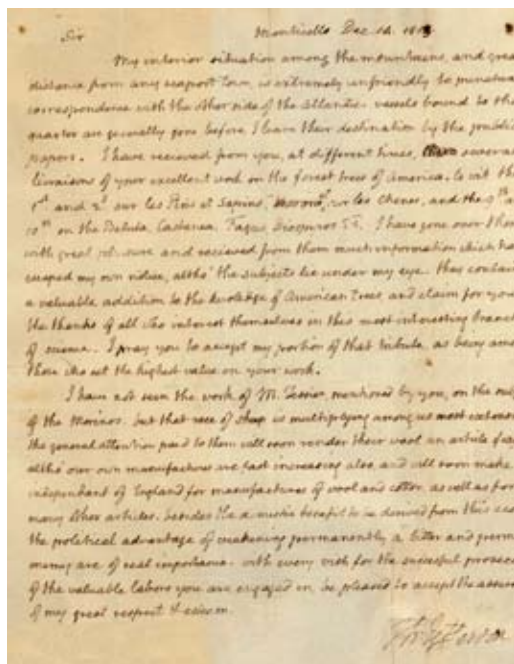 Sir Monticello Dec. 14. 1813
My interior situation among the mountains, and great
distance from any seaport town, is extremely unfriendly to punctual
correspondence with the other side of the Atlantic. vessels bound to that
quarter are generally gone before I learn their destination by the public
papers. I have recieved from you, at different times, several
livraisons of your excellent work on the forest trees of America. to wit the
1st and 2d sur les Pins et Sapins, sur les Chenes, and the 9th
10th on the Betula, Castanea, Fagus, Diospyros &c. I have gone over them
with great pleasure and recieved from them much information which had
escaped my own notice, altho' the subjects lie under my eye. they contain
a valuable addition to the knolege of American trees and claim for you
the thanks of all who interest themselves in this most interesting branch
of science. I pray you to accept my portion of that tribute, as being among
those who set the highest value on your work.
I have not seen the work of M. Tessier, mentioned by you, on the
of the Merinos. but that race of sheep is multiplying among us most
the general attention paid to them will soon render their wool an article
altho' our own manufactures are fast increasing also, and will soon make
independant of England for manufactures of wool and cotton, as well as for
many other articles. besides the domestic benefit to be derived from this
the political advantage of weakening permanently a bitter and
enemy are of real importance. with every wish for the succesful
of the valuable labors you are engaged in, be pleased to accept the
of my great respect & esteem.
Th: Jefferson